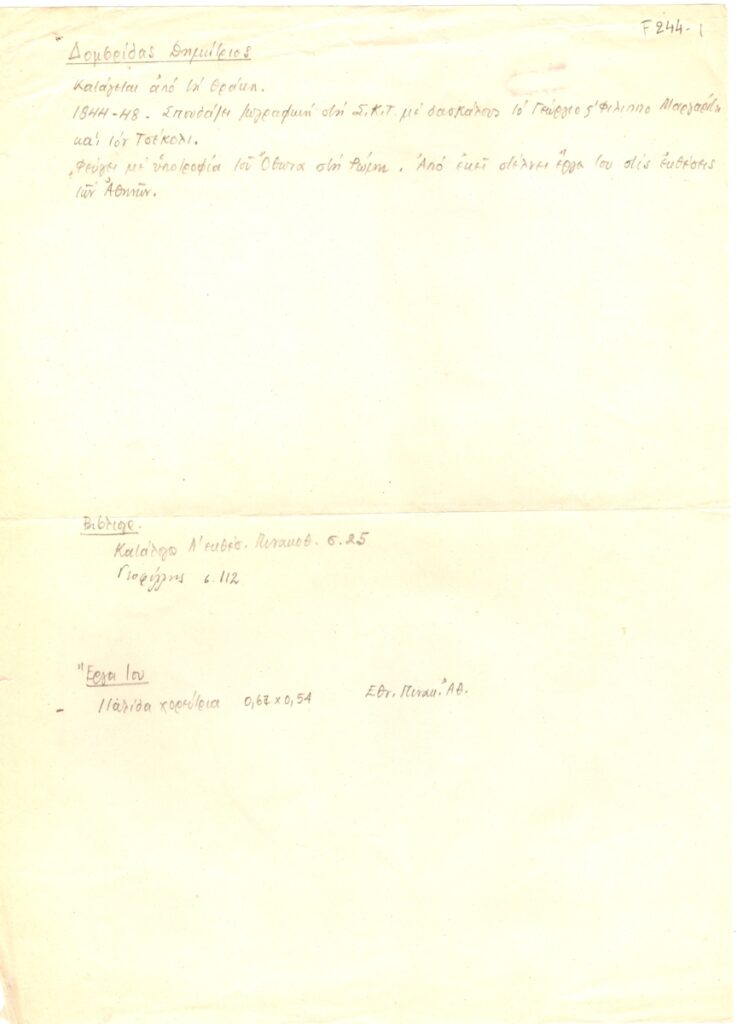 F 244-1
Δομβρίδας Δημήτριος
Κατάγεται ἀπό τή Θράκη.
1844-48. Σπουδάζει ζωγραφική στή Σ.Κ.Τ. μέ δασκάλους τό Γεώργιο ς' Φίλιππο Μαργαρίτη
καί τόν Τσέκολι.
Φεύγει μέ ὑποτροφία τοῦ Ὄθωνα στή Ρώμη. Ἀπό ἐκεῖ στέλνει ἔργα του στίς ἐκθέσεις
τῶν Ἀθηνῶν.
Βιβλιογρ.
Κατάλογο Α' ἐκθέσ. Πινακοθ. σ. 25
σ. 112
Ἔργα του
- χορεύτρια 0,67 x 0,54 Ἐθν. Πινακ. Ἀθ.